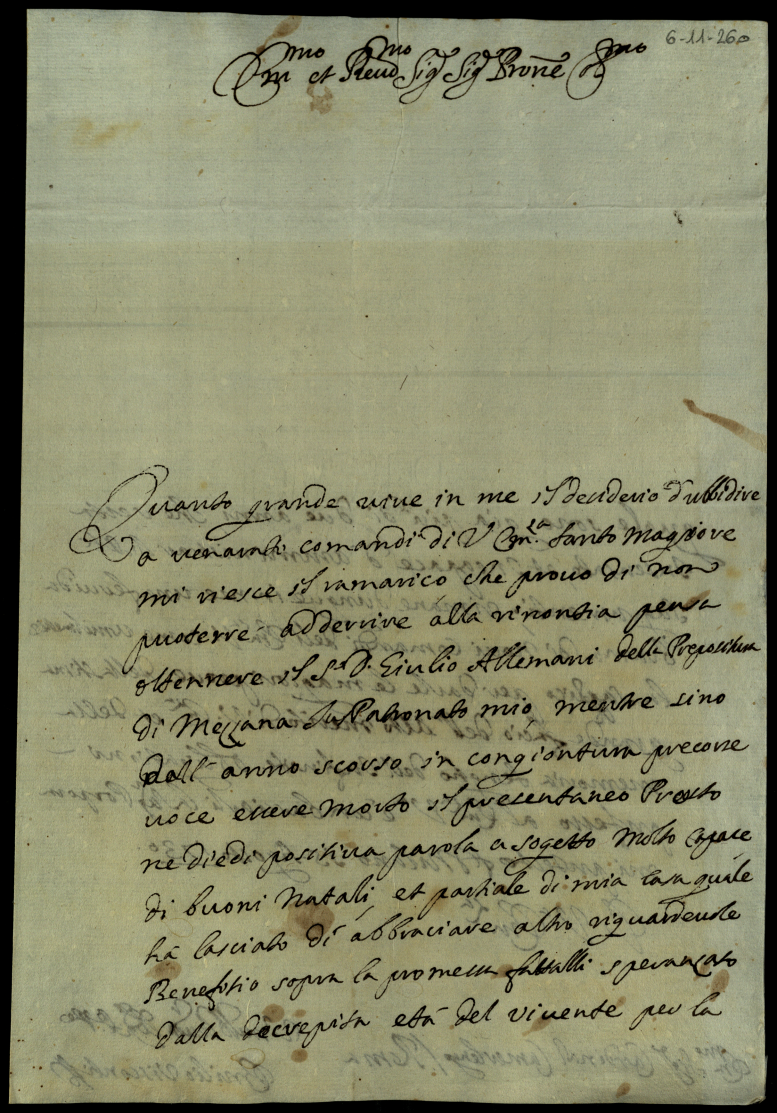 6-11-260
Em.mo et Reud.mo Sig.r Sig.r Pronẽ Col.mo
Quanto grande viue in me il desiderio d'ubbidire
a venerati comandi di V. Em.za tanto maggiore
mi riesce il ramarico che prouo di non
puoterre adderrire alla rinontia pensa
ottennere il S.r D. Giulio Allemani della Prepositura
di Mezzana Jus Patronato mio, mentre sino
dall' anno scorso in congiontura precorse
uoce essere morto il presentaneo Preosto
ne diedi positiua parola a sogetto molto capace
di buoni Natali, et partiale di mia casa quale
hà lasciato di abbraciare altro riguardeuole
Benefitio sopra la promessa fattalli speranzato
dalla decrepita età del viuente per la